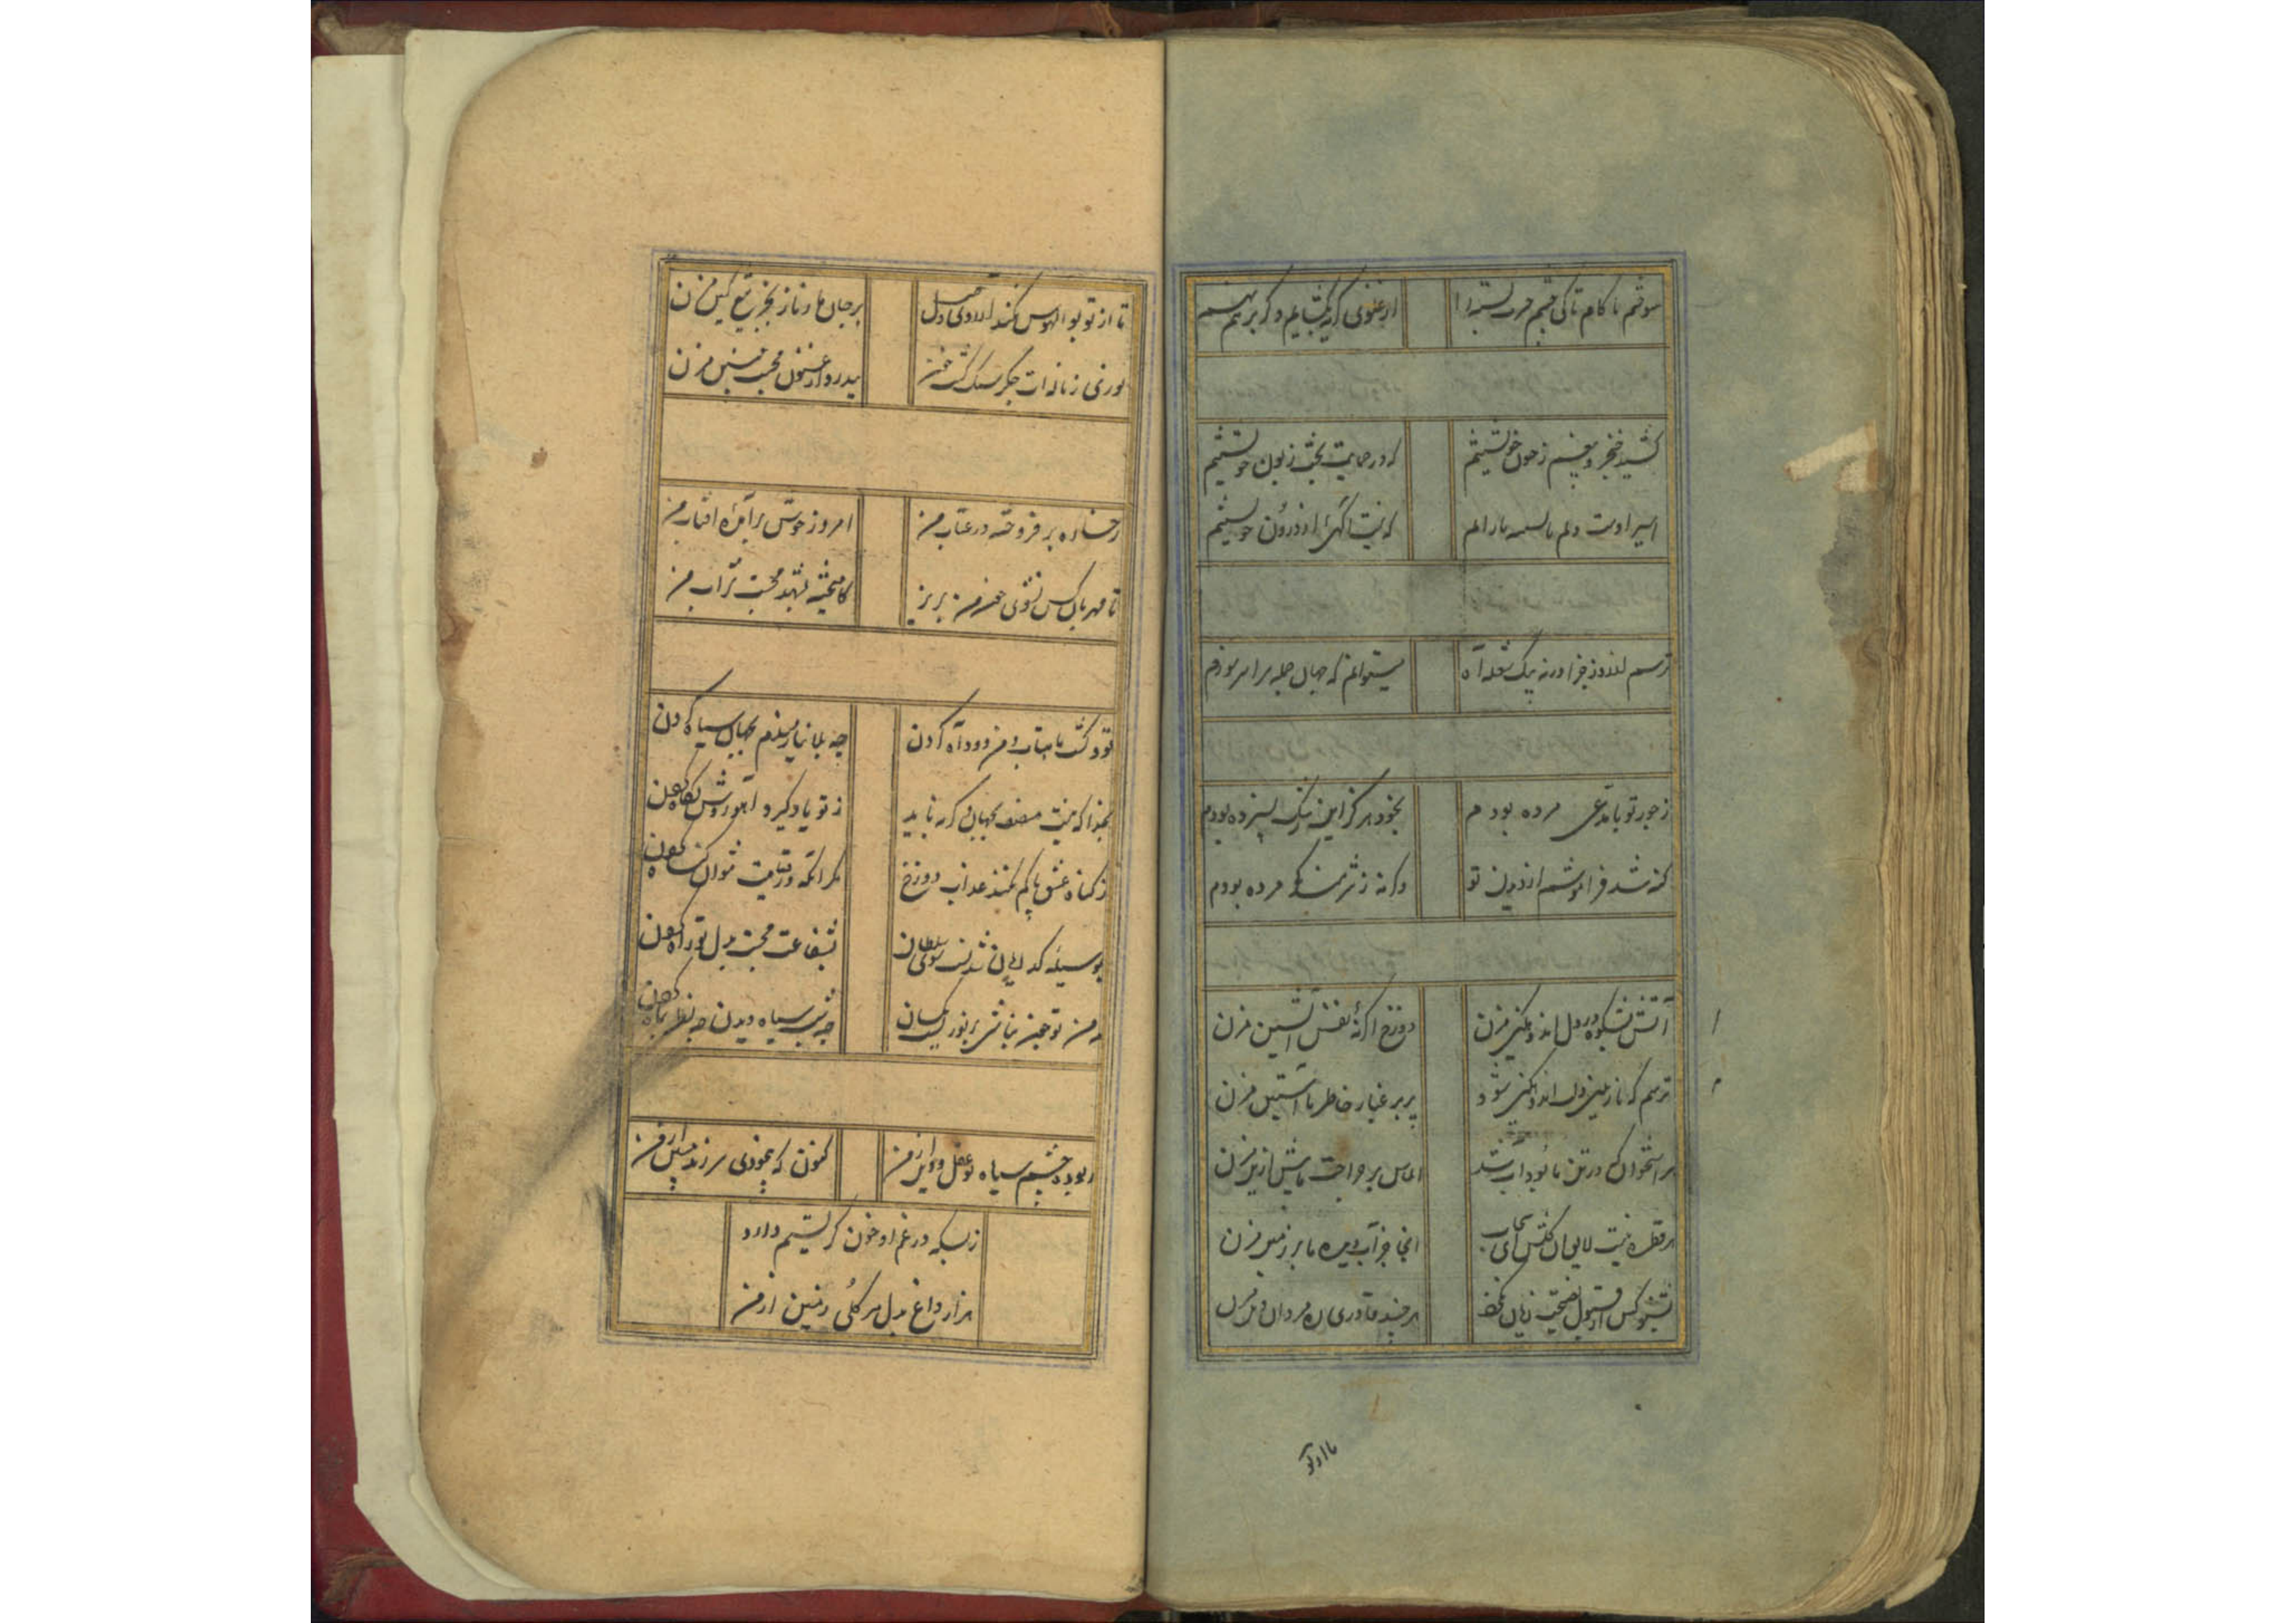 سوختم ناکام تا کی چشم حسرت بسته را
از غنوی گر بگشایم و گر برهم نهم
کشید خنجر و بیغم ز خون خویشتنم
که در حمایت بخت زبون خویشتنم
اسیر اوست دلم
که نیست آگهی از درون خویشتنم
ترسم از روز جزا ورنه بیک شعله آه
میتوانم که جهان جمله سراسر سوزم
ز جور تو با مدعی مرده بودم
بخود هرگز این ننگ نسپرده بودم
که شد فراموشم از دیدن تو
وگرنه ز شرمندگی مرده بودم
آتش شکوه در دل اندوهگین مزن
دوزخ اگر نه نفس آتشین مزن
ترسم که نازنین دلت اندوهگین شود
بر بر غبار خاطر ما آستین مزن
هر استخوان که در تن ما بود آب شد
الماس بر جراحت ما بیش ازین مزن
هر قطره نیست لایق آن کفش ای سحاب
اینجا جز آب دیده ما بر زمین مزن
نشنو کس از قبول نصیحت زیان نکرد
هر چند قادری ره مردان دین مزن
تا از تو
تا از تو بوالهوس نکند آرزوی دل
بر جان ما ز ناز بجز تیغ کین مزن
نوری زبانه ات جگر سنگ گشت خون
بیدرد ارغنون محبت چنین مزن
رخساره بر فروخته در عتاب من
امروز خوش برآمده آفتاب من
تا مهربان کس نشوی خون من بریز
کامیخته بشهد محبت شراب من
تو و گشت ماهتاب و من و دود آه کردن
چه بلا نیازمندم بجهان سیاه کردن
بخدا که نیست منصف بجهان وگرنه باید
ز تو یاد گیرد آهو روش نگاه کردن
ز گناه عشق پاکم نکند عذاب دوزخ
مگر آنکه در قیامت نتوان گناه کردن
بوسیله گدایان شدنست سوی سلطان
بشفاعت محبت بدل تو راه کردن
به من تو چون نباشی بنور آسمان
چه شب سیاه دیدن چه نظر بماه کردن
ربود چشم سیاه تو عقل و دین از من
کنون که بیخودی سر زند مبین از من
ز بسکه در غم او خون گریستم دارد
هزار داغ بدل هر گلی زمین از من